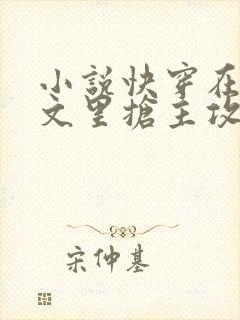 小說快穿在
文里搶主攻
宋仲基